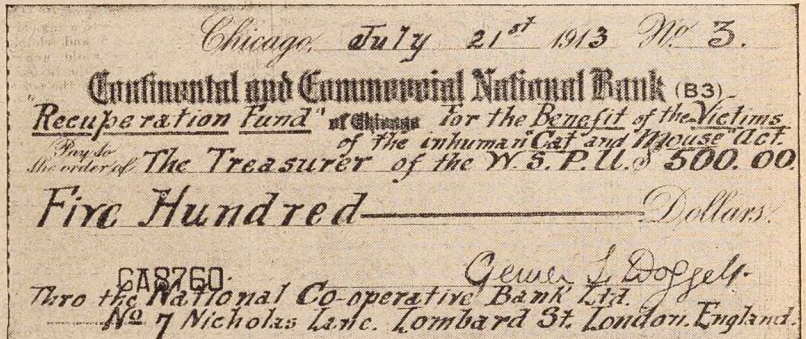 Chicago, July 21st 1913 No 3.
Continental and Commercial National Bank (B3)
"Recuperation Fund" of Chicago for the Benefit of the Victims
of the inhuman "Cat and Mouse" Act.
Pay to
the order of The Treasurer of the W.S.P.U. $ 500.00.
Five Hundred Dollars.
CA8760
Thro the National Co-operative Bank Ltd.
No 7 Nicholas Lane. Lombard St. London. England.